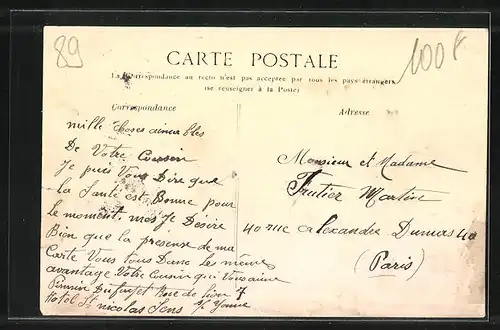 89
100F
CARTE POSTALE
La Correspondance au recto n'est pas acceptée par tous les pays étrangers
(se renseigner à la Poste)
Correspondance
Adresse
mille choses aimables
De Votre Cousin
Je puis Vous Dire que
la Santé est Bonne pour
le moment. mos Je Désire
Bien que la présense de ma
Carte Vous tous Dans le même
avantage Votre Cousin qui Vous aime
Rue de Lion 7
Hotel St nicolas Sens s/ Yonne
Monsieur et Madame
Frutier Martine
40 rue alexandre Dumas 40
(Paris)